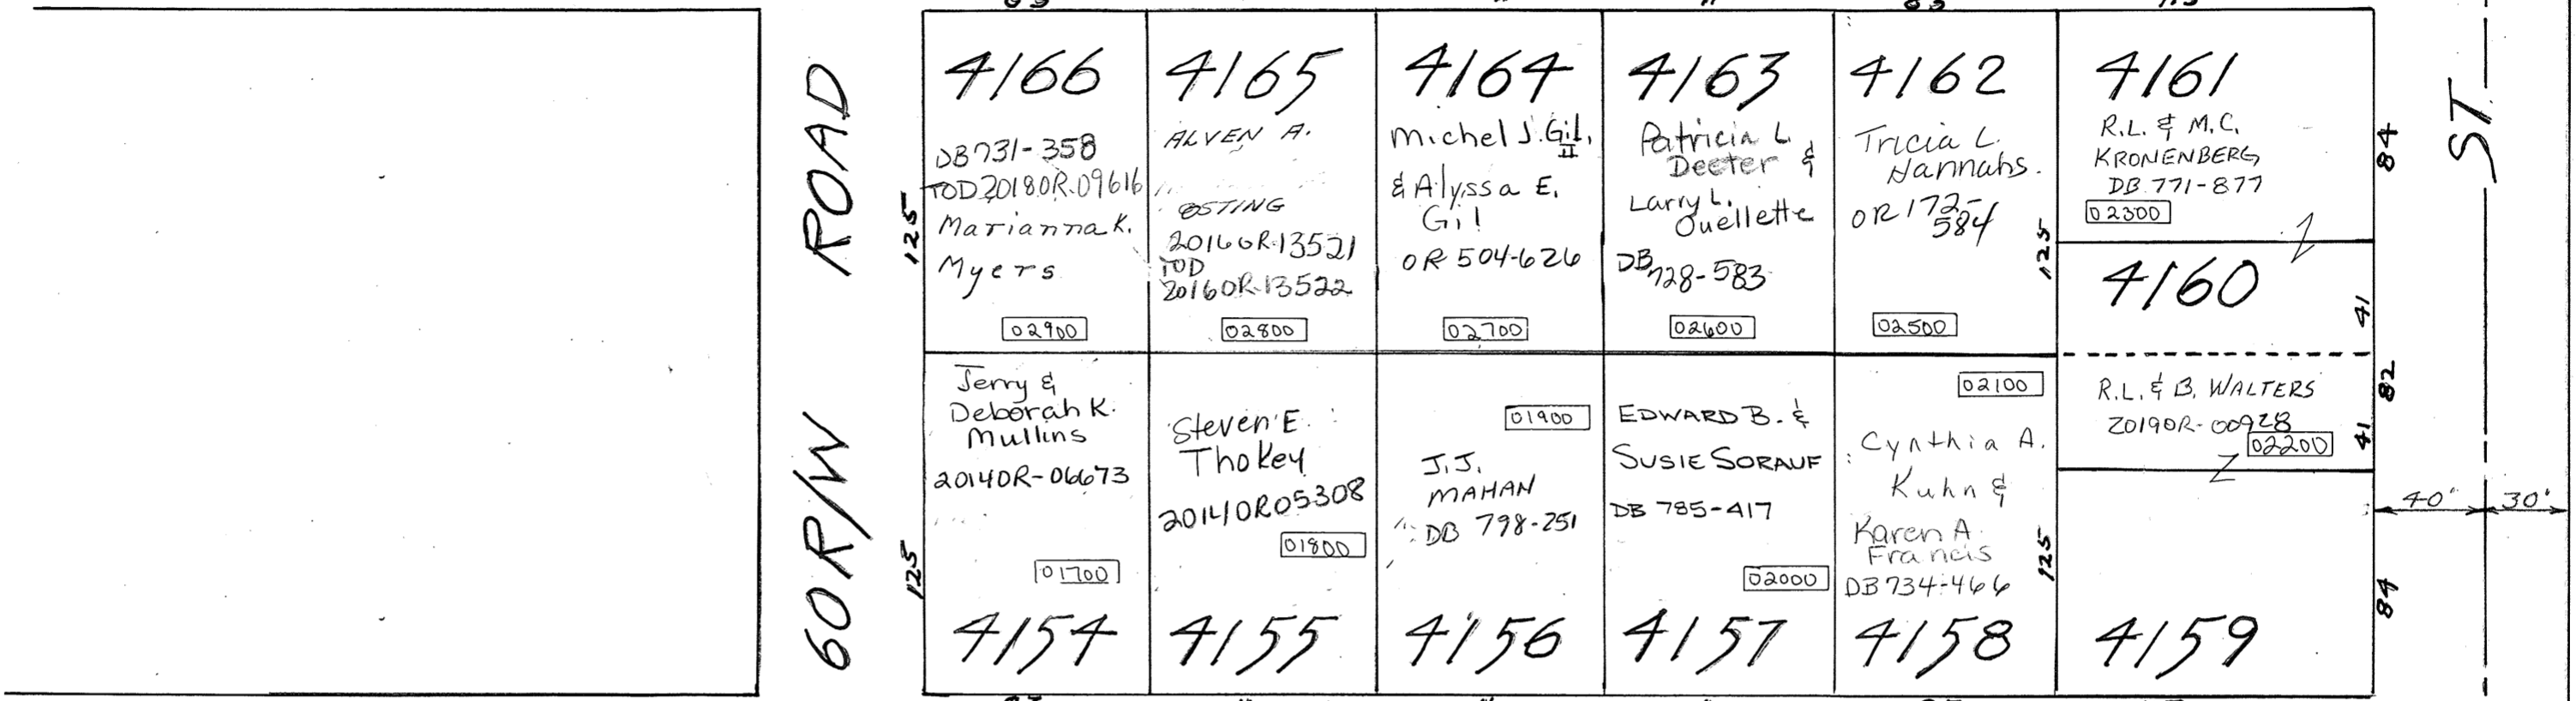 4166
DB731-358
TOD 2018OR-09616
Marianna K.
Myers
02900
4165
ALVEN A.
OSTING
2016OR-13521
TOD
2016OR-13522
02800
4164
Michel J. Gil,
II
& Alyssa E.
Gil
OR 504-626
02700
4163
Patricia L.
Deeter &
Larry L.
Ouellette
DB
728-583
02600
4162
Tricia L.
Hannahs.
OR 172-
584
02500
4161
R.L. & M.C.
KRONENBERG
DB 771-877
02300
4160
60 R/W ROAD
125
125
125
125
84
41
82
41
84
ST.
40'
30'
Jerry &
Deborah K.
Mullins
2014OR-06673
01700
4154
Steven E.
Thokey
2014OR05308
01800
4155
01900
J.J.
MAHAN
DB 798-251
4156
EDWARD B. &
SUSIE SORAUF
DB 785-417
02000
4157
02100
Cynthia A.
Kuhn &
Karen A.
Francis
DB 734-466
4158
R.L. & B. WALTERS
2019OR-00928
02200
4159